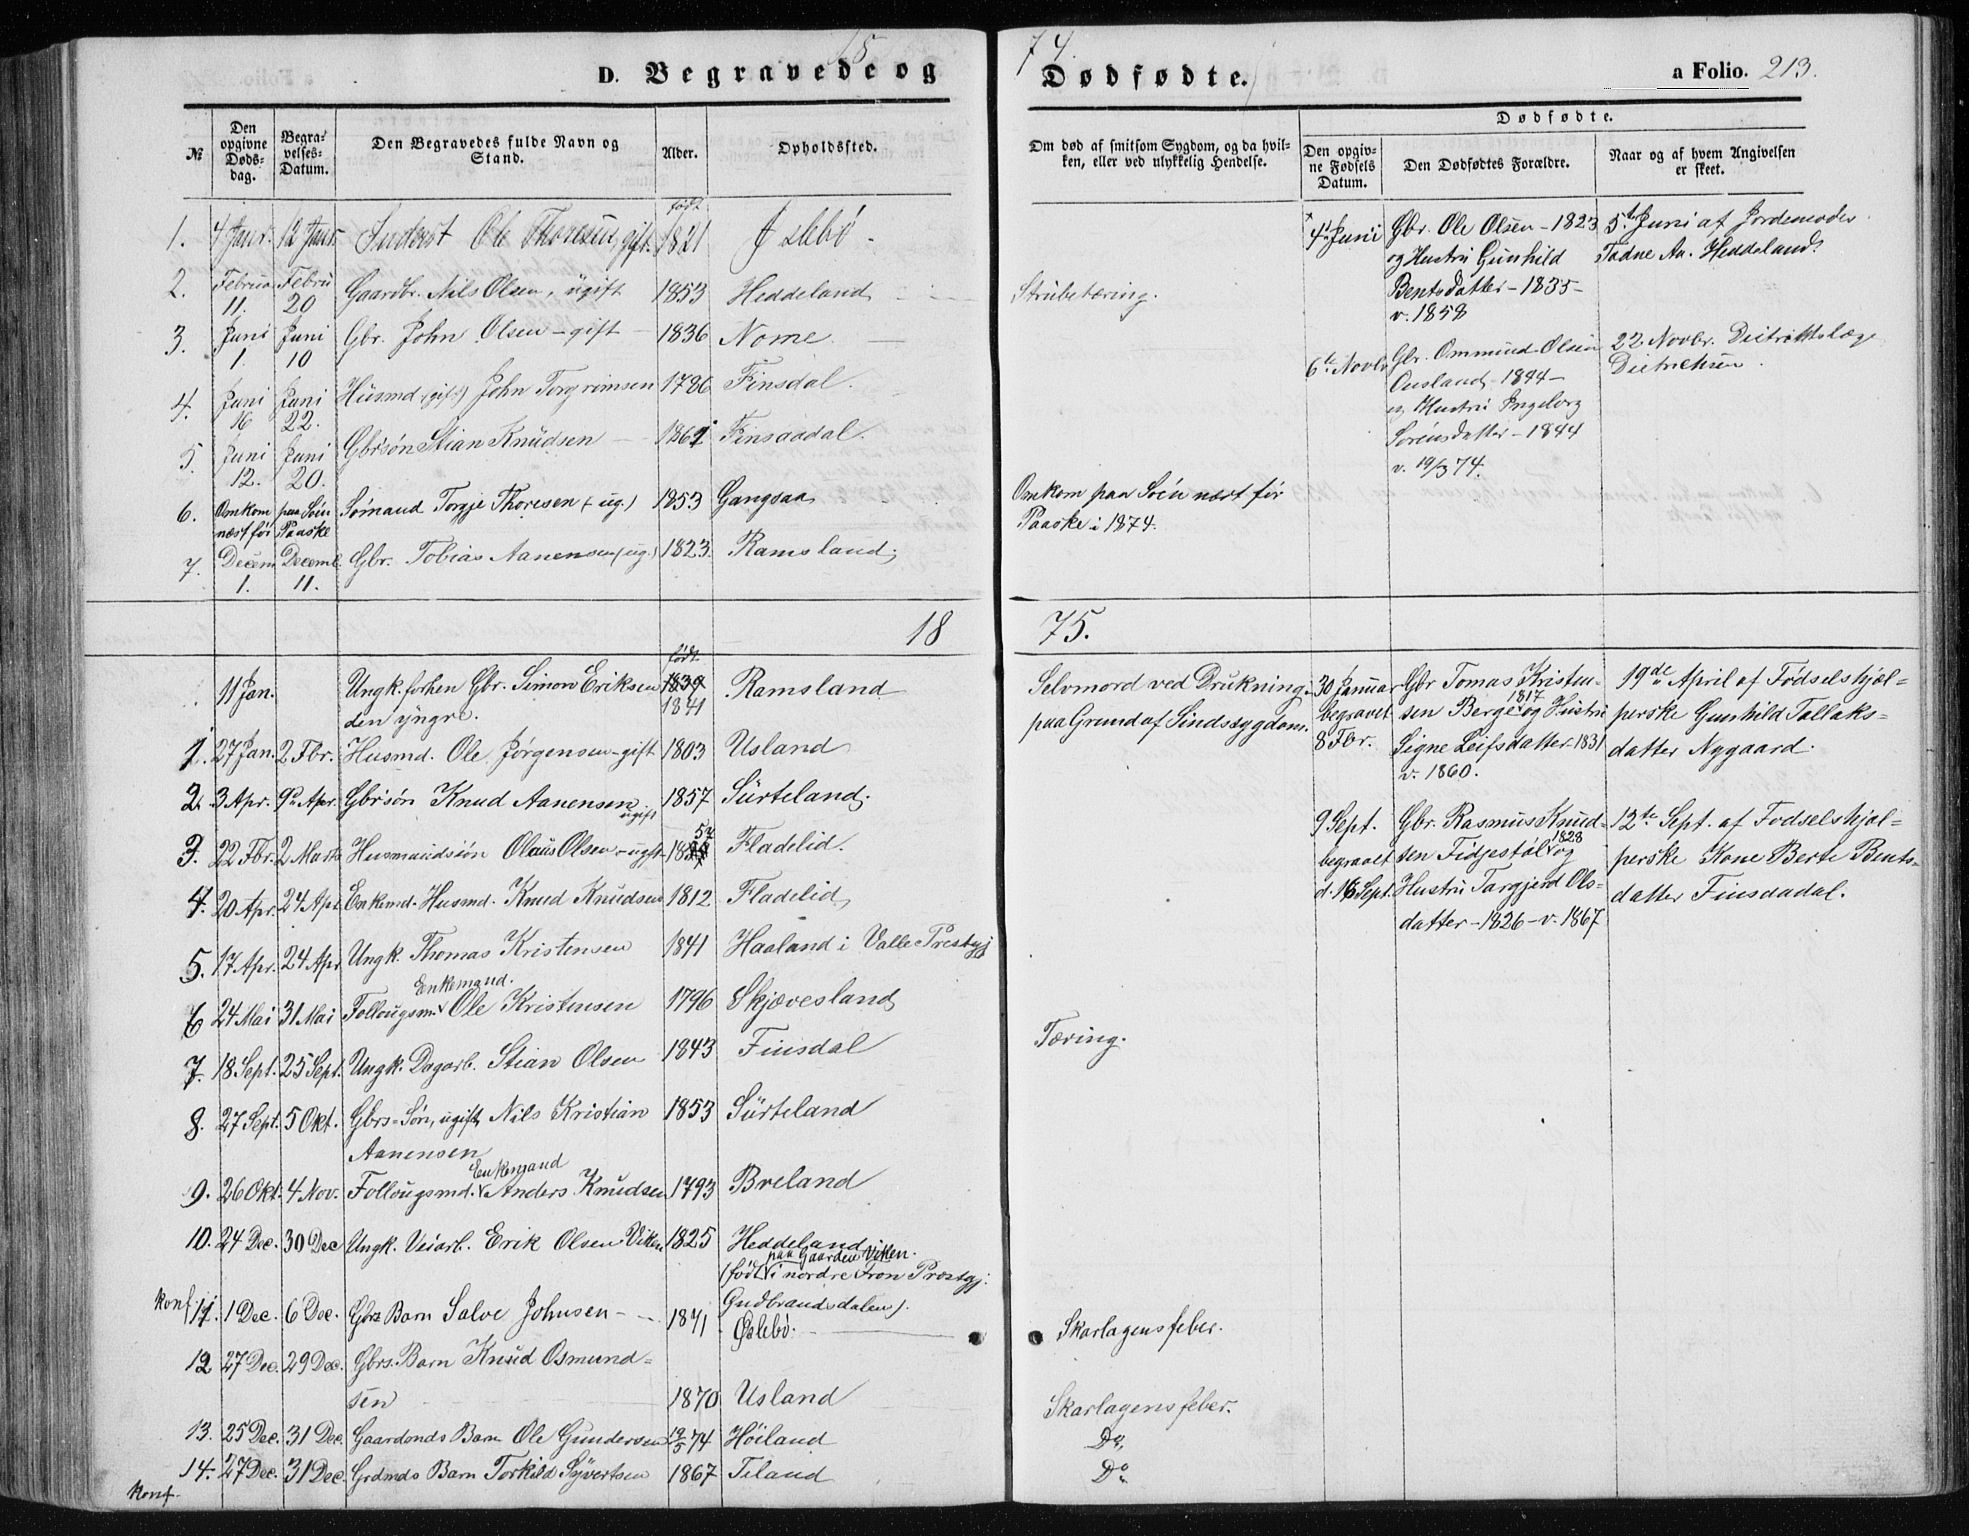 18 74.
D. Begravede og Dødfødte.
a Folio. 213.
№
Den opgivne Døds-dag.
Begra-velses-Datum.
Den Begravedes fulde Navn og Stand.
Alder.
Opholdssted.
Om død af smitsom Sygdom, og da hvil-ken, eller ved ulykkelig Hendelse.
Dødfødte.
Den opgiv-ne Fødsels Datum.
Den Dødfødtes Forældre.
Naar og af hvem Angivelsen er skeet.
født
1. 4 Janr. 12 Janr. Inderst Ole Thoresen, gift. 1821
2. Februar 11. Februar 20 Gaardbr. Nils Olsen, ugift 1853 Heddeland Strubetæring.
3. Juni 1. Juni 10 Gbr. John Olsen - gift 1836 Nome
4. Juni 16 Juni 22. Husmd (gift) John Torgrimsen 1786 Finsdal.
5. Juni 12. Juni 20. Gbrsøn Stian Knudsen 1861 Finsaadal.
6. Omkom paa Søen næst før Paaske Sømand Torgje Thoresen (ug.) 1853 Gangsaa Omkom paa Søen næst før
Paaske i 1874.
7. Decem 1. Decemb. 11. Gbr. Tobias Aanensen (ug.) 1823. Ramsland
4de Juni Gbr. Ole Olsen - 1823 5te Juni af Jordemoder
og Hustru Gunhild Tadne Aa. Heddeland.
Bentsdatter - 1835 -
v. 1858
6te Novbr Gbr. Ommund Olsen 22 Novbr. Distriktslæge
Ousland - 1844 - Dietrichsen.
og Hustru Ingeborg
Sørensdatter - 1844
v. 19/3 74.
18 75.
født
11 Jan. Ungk. forhen Gbr. Simon Eriksen 1839 Ramsland Selvmord ved Drukning
den yngre. 1841 paa Grund af Sindssygdom.
1. 27 Jan. 2 Fbr. Husmd. Ole Jørgensen - gift 1803 Usland
2. 3 Apr. 9 Apr. Gbrsøn Knud Aanensen ugift 1857 Sürteland.
3. 22 Fbr. 2 Marts Husmandssøn Olaus Olsen - ugft Fladelid.
4. 20 Apr. 24 Apr. Enkemd. Husmd. Knud Knudsen 1812 Fladelid
5. 17 Apr. 24 Apr. Ungk. Thomas Kristensen 1841 Haaland i Valle Prestgj
6 24 Mai 31 Mai Follougsm. Enkemand. Ole Kristensen 1796 Skjævesland
7. 18 Sept. 25 Sept. Ungk. Dagarb. Stian Olsen 1843 Finsdal Tæring.
8. 27 Sept. 5 Okt. Gbrs-Søn, ugift, Nils Kristian 1853 Sürteland
Aanensen
9. 26 Okt. 4 Nov. Follougsmd. Enkemand Anders Knudsen 1793 Breland
10. 24 Dec. 30 Dec Ungk. Veiarb. Erik Olsen Viken 1825 Heddeland
(født paa Gaarden Viken i nordre Fron Prestgj.
Gudbrandsdalen).
konf. 11. 1 Dec. 6 Dec. Gbrs Barn Salve Johnsen - 1871 Øslebø. Skarlagensfeber.
12 27 Dec. 29 Dec. Gbrs. Barn Knud Osmund-
sen 1870 Usland Skarlagensfeber.
13. 25 Dec. 31 Dec. Gaardmds Barn Ole Gundersen 74 Høiland Do.
14. 27 Dec. 31 Dec. Grdmds Barn Torkild Syvertsen 1867 Tiland Do
konf.
30 Januar Gbr Tomas Kristen- 19de April af Fødselshjæl-
begravet sen Berge 1817 og Hustru perske Gunhild Tallaks-
8 Fbr. Signe Leifsdatter 1831 datter Nygaard.
v. 1860.
9 Sept. Gbr. Rasmus Knud- 12te Sept. af Fødselshjæl-
begravet sen Fidjestøl 1828 og perske Kone Berte Bents-
d. 16 Sept. Hustru Targjerd Ols- datter Finsdadal.
datter - 1826 - v. 1867